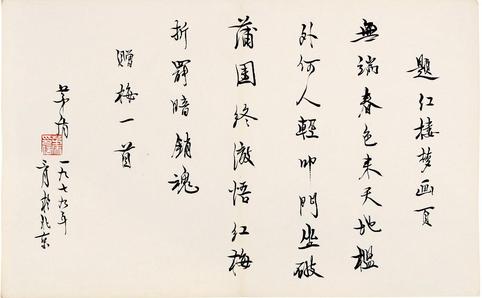 題红楼梦画頁
無端春色来天地檻
外何人輕叩門坐破
蒲團終澈悟红梅
折罷暗銷魂
贈梅一首
茅盾
一九七九年
月於北京